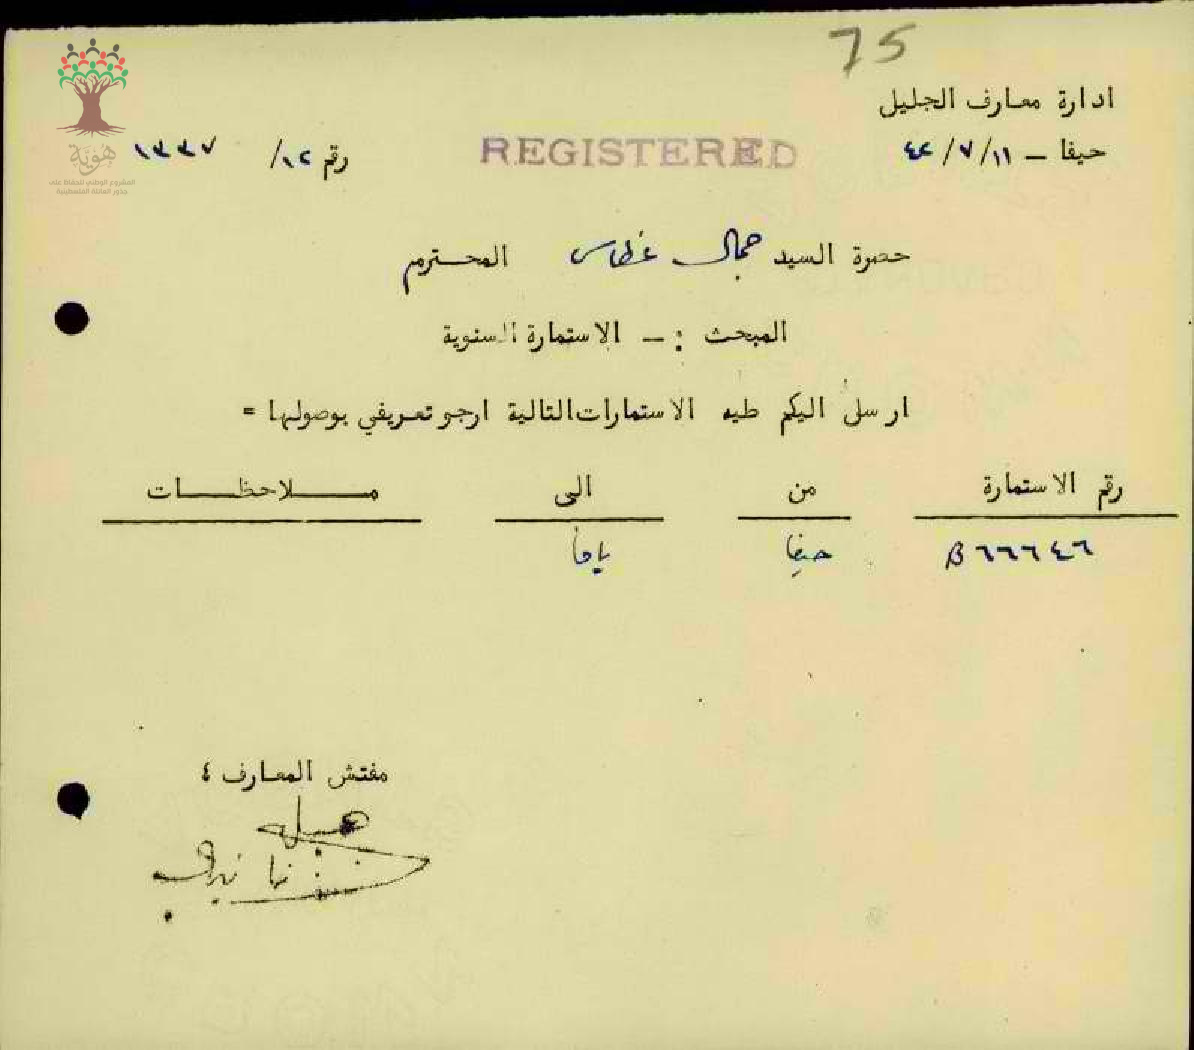 75
ادارة معارف الجليل
حيفا – ١١/٧/٤٢
REGISTERED
رقم ١٢/ ١٣٣٧
هوية
المشروع الوطني للحفاظ على
جذور العائلة الفلسطينية
حضرة السيد جمال غطاس المحترم
المبحث :– الاستمارة السنوية
ارسل اليكم طيه الاستمارات التالية ارجو تعريفي بوصولها =
رقم الاستمارة من الى مــلاحظــات
B ٦٦٦٤٦ حيفا يافا
مفتش المعارف ٤